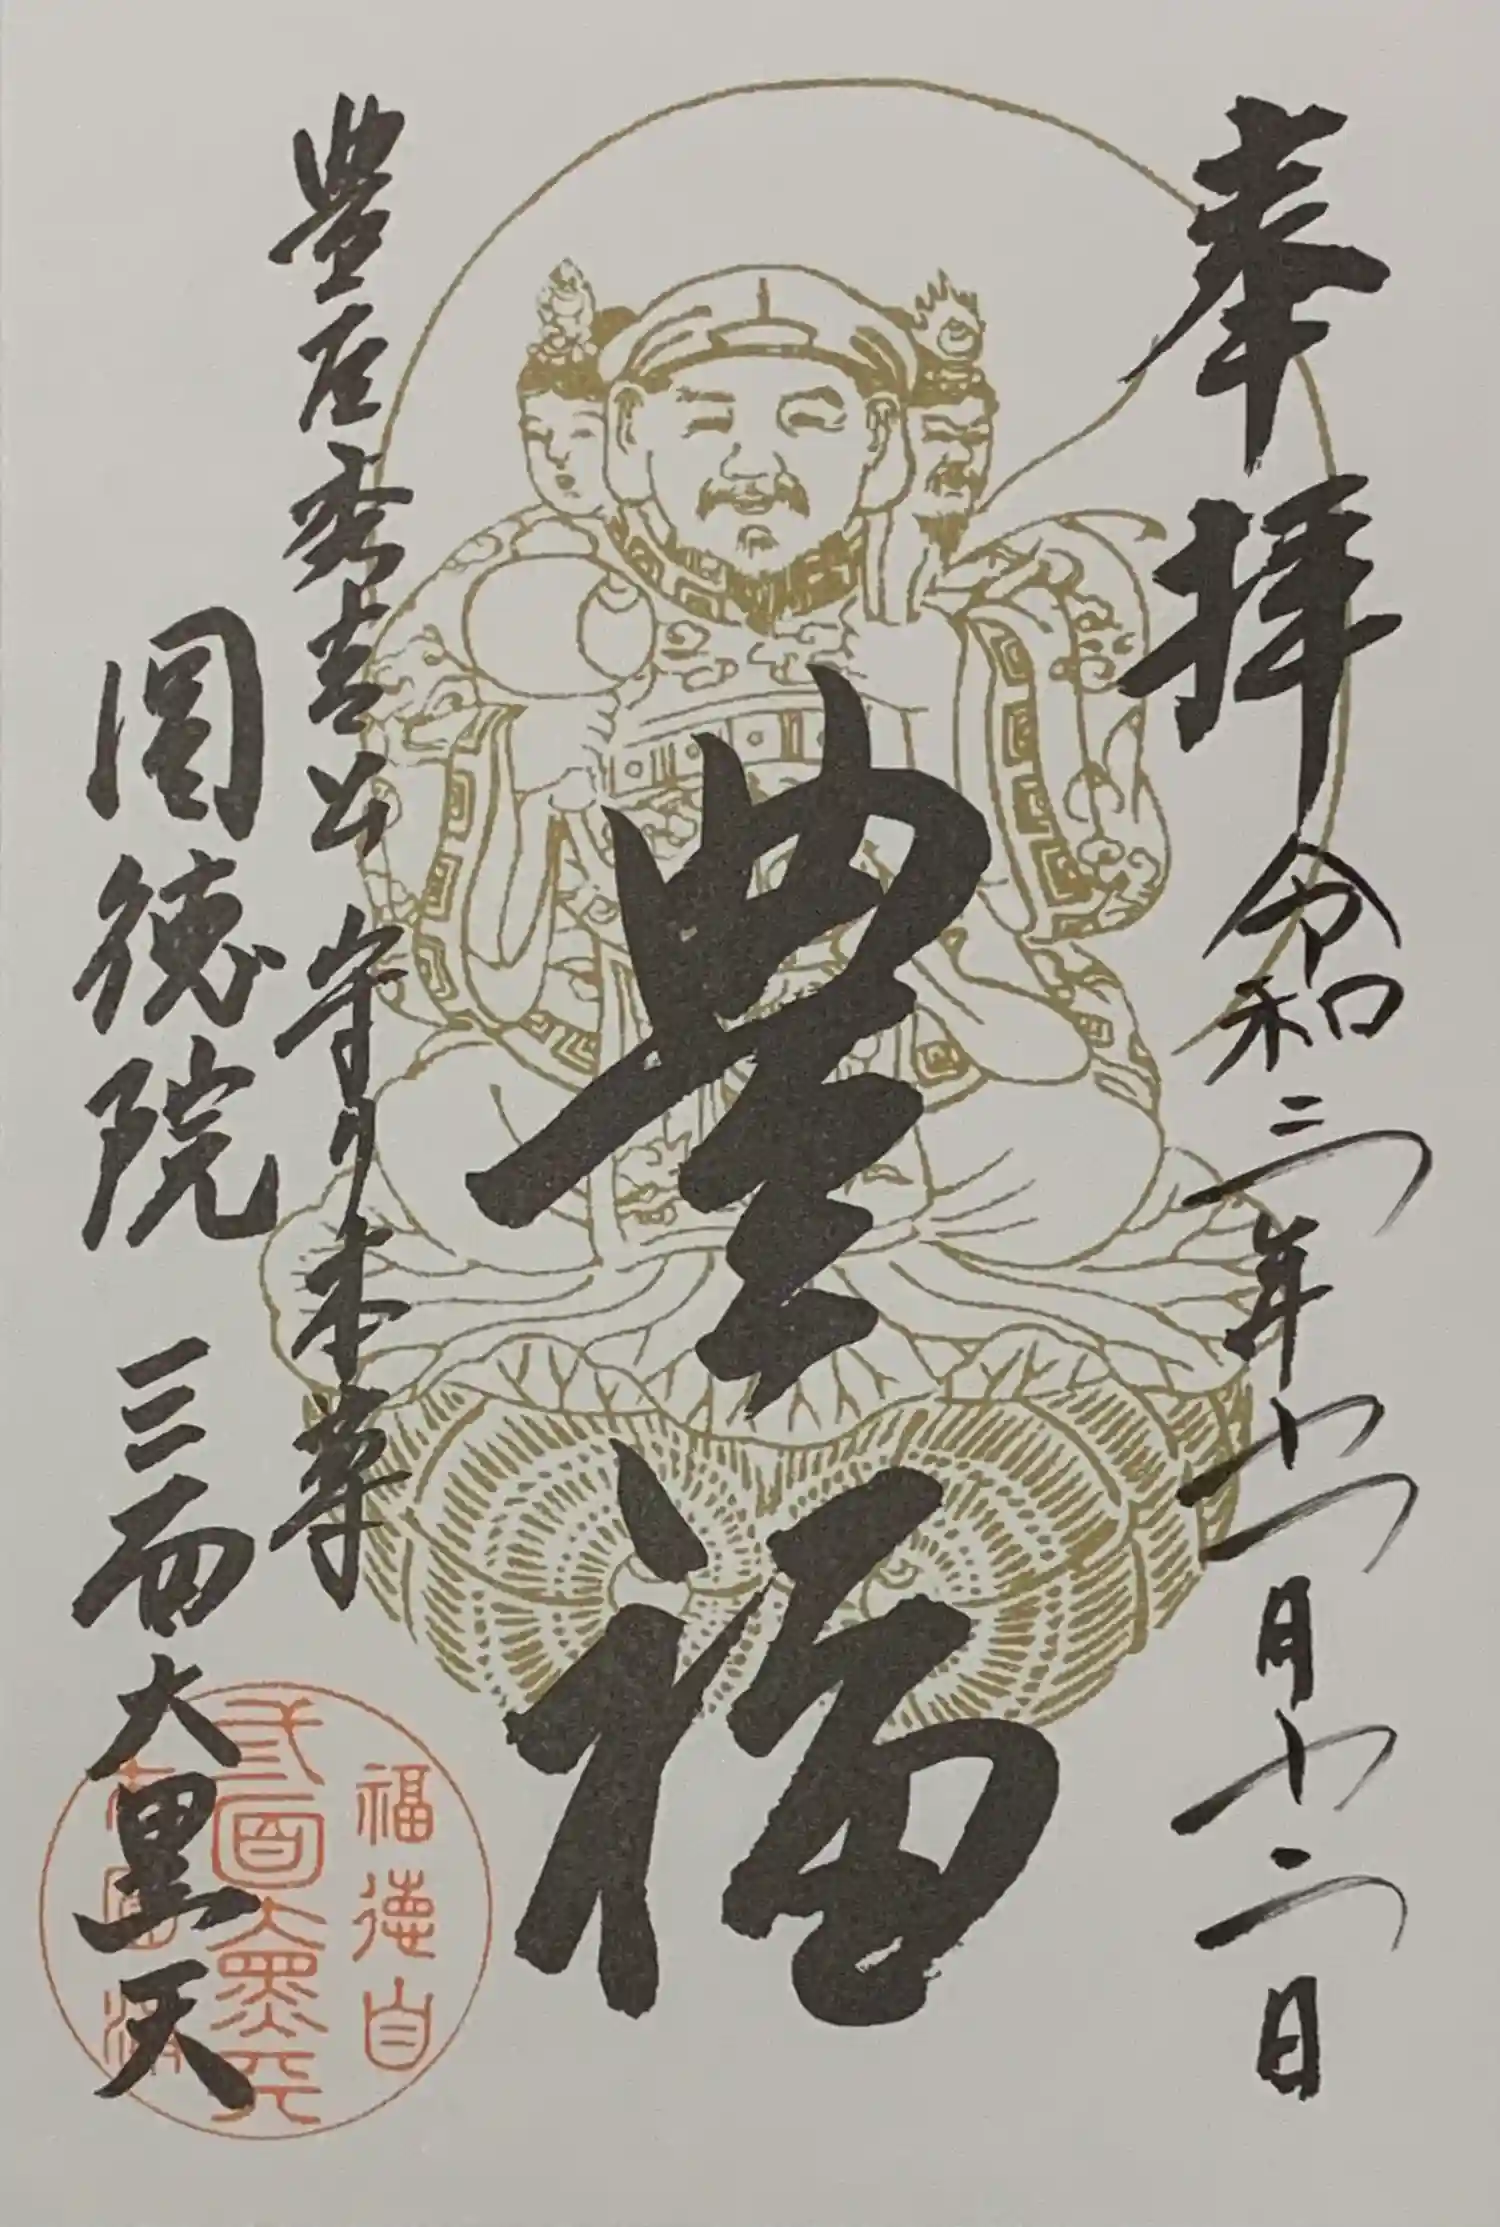 奉拝 令和二年十一月十二日
豊福
豊臣秀吉公 守り本尊
圓徳院 三面大黒天
福徳自
弎面大黒天